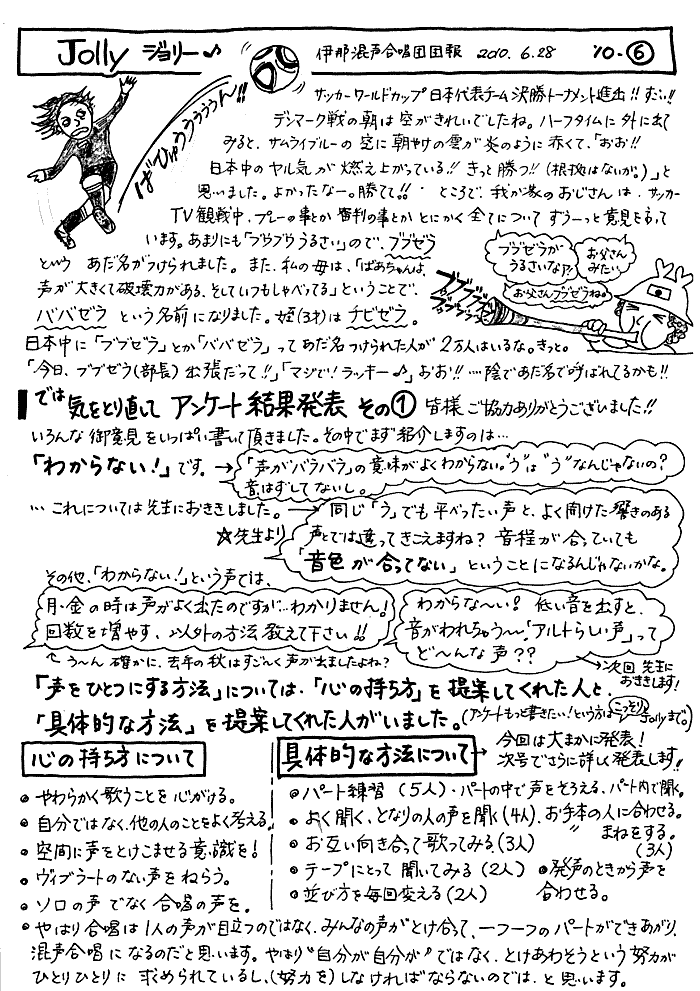 Jolly ジョリー♪ 伊那混声合唱団団報 2010.6.28 '10-⑥
ばびゅうううぅん!!
サッカーワールドカップ日本代表チーム決勝トーナメント進出!!すごい!!
デンマーク戦の朝は空がきれいでしたね。ハーフタイムに外に出て
みると、サムライブルーの空に朝やけの雲が炎のように赤くて、「おお!!
日本中のヤル気が燃え上がっている!!きっと勝つ!!(根拠はないが。)」と
思いました。よかったなー。勝てて!!・ところで、我が家のおじさんは、サッカー
TV観戦中、プレーの事とか審判の事とかとにかく全てについてずうーっと意見を言って
います。あまりにも「ブウブウうるさい」ので、ブブゼラ
という あだ名がつけられました。また、私の母は、「ばあちゃんは、
声が大きくて破壊力がある、そしていつもしゃべってる」ということで、
ババゼラ という名前になりました。姪(3才)は チビゼラ。
ブブゼラが、うるさいなア!
お父さんみたい
お父さんブブゼラね。
ブブブー
ブブブブブ
日本中に「ブブゼラ」とか「ババゼラ」ってあだ名つけられた人が2万人はいるな。きっと。
「今日、ブブゼラ(部長)出張だって!!」「マジで!ラッキー♪」おお!!…陰であだ名で呼ばれてるかも!!
では気をとり直して アンケート結果発表 その① 皆様ご協力ありがとうございました!!
いろんな御意見をいっぱい書いて頂きました。その中でまず紹介しますのは…
「わからない!」です。→「声がバラバラ」の意味がよくわからない。"う"は"う"なんじゃないの?
音はずしてないし。
… これについては先生におききしました。→
☆先生より
同じ「う」でも平べったい声と、よく開けた響きのある
声とでは違ってきこえますね?音程が合っていても
「音色が合ってない」ということになるんじゃないかな。
その他、「わからない!」という声では、
月・金の時は声がよく出たのですが…わかりません!
回数を増やす、以外の方法教えて下さい!!
わからな〜い?低い音を出すと、
音がわれちゃう〜。「アルトらしい声」って
ど〜んな声??
う〜ん 確かに、去年の秋はすご〜く声が出ましたよね?
→次回 先生におききします!
「声をひとつにする方法」については、「心の持ち方」を提案してくれた人と、
「具体的な方法」を提案してくれた人がいました。(アンケートもっと書きたい!という方はこっそりJollyまで。)
心の持ち方について
◉やわらかく歌うことを心がける。
◉自分ではなく、他の人のことをよく考える。
◉空間に声をとけこませる意識を!
◉ヴィブラートのない声をねらう。
◉ソロの声でなく合唱の声を。
具体的な方法について→今回は大まかに発表!
次号でさらに詳しく発表します!!
◉パート練習(5人)・パートの中で声をそろえる、パート内で聞く。
◉よく聞く、となりの人の声を聞く(4人)、お手本の人に合わせる。
〃 まねをする。(3人)
◉お互い向き合って歌ってみる(3人)
◉テープにとって聞いてみる(2人) ◉発声のときから声を合わせる。
◉並び方を毎回変える(2人)
◉やはり合唱は1人の声が目立つのではなく、みんなの声がとけ合って、一つ一つのパートができあがり、
混声合唱になるのだと思います。やはり"自分が自分が"ではなく、とけあわそうという努力が
ひとりひとりに求められているし、(努力を)しなければならないのでは、と思います。